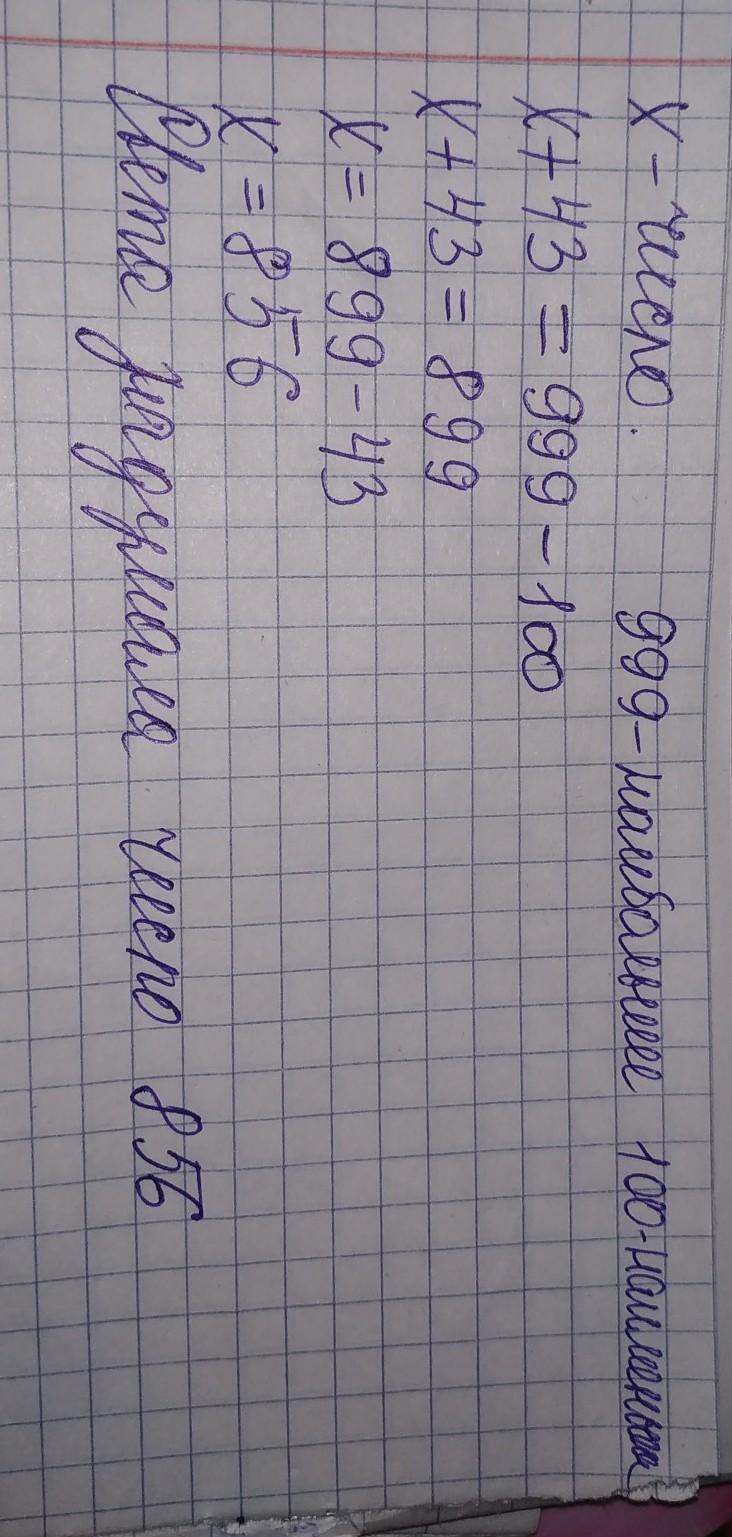 x - число. 999 - наибольшее 100 - наименьшее
x + 43 = 999 - 100
x + 43 = 899
x = 899 - 43
x = 856
Света задумала число 856